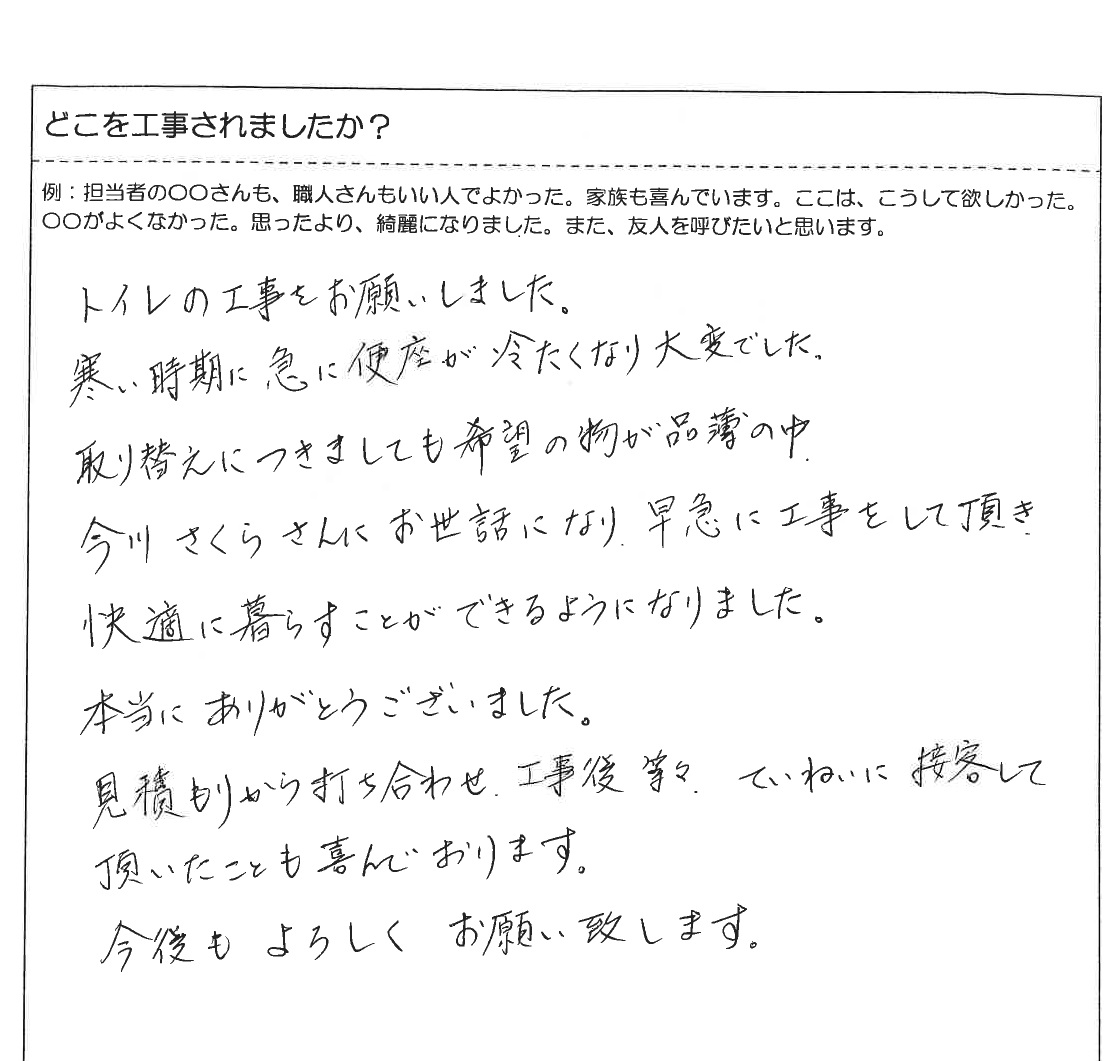 どこを工事されましたか？
例：担当者の〇〇さんも、職人さんもいい人でよかった。家族も喜んでいます。ここは、こうして欲しかった。
〇〇がよくなかった。思ったより、綺麗になりました。また、友人を呼びたいと思います。
トイレの工事をお願いしました。
寒い時期に急に便座が冷たくなり大変でした。
取り替えにつきましても希望の物が品薄の中、
今川さくらさんにお世話になり、早急に工事をして頂き、
快適に暮らすことができるようになりました。
本当にありがとうございました。
見積もりから打ち合わせ、工事後等々、ていねいに接客して
頂いたことも喜んでおります。
今後もよろしくお願い致します。